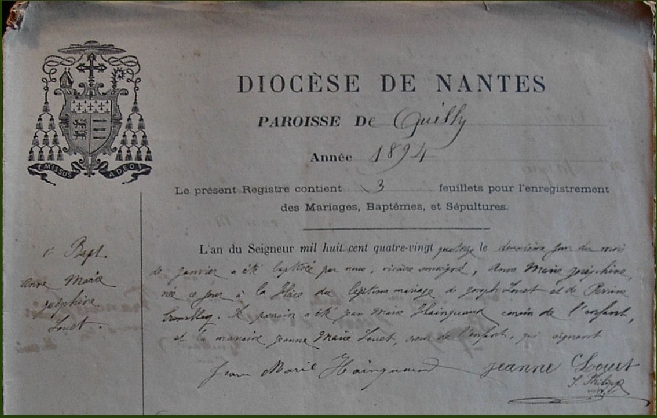 DIOCÈSE DE NANTES
PAROISSE DE Quilly
Année 1894
Le présent Registre contient 3 feuillets pour l'enregistrement
des Mariages, Baptêmes, et Sépultures.
MISSUS A DEO
1 Bapt.
Anne Marie
Joséphine
Louet.
L'an du Seigneur mil huit cent quatre-vingt quatorze le deuxième jour du mois
de janvier a été baptisée par nous, vicaire soussigné, Anne Marie Joséphine,
née ce jour à la Place du légitime mariage de Joseph Louet et de Perrine
Le parrain a été Jean Marie Hainguaud cousin de l'enfant,
et la marraine Jeanne Marie Louet, de l'enfant, qui signent
Jean Marie Hainguaud Jeanne Louet